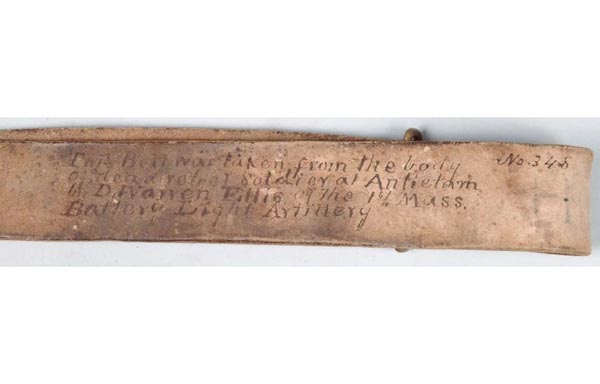 This Belt was taken from the body
of a dead rebel Soldier at Antietam
by D. Warren Ellis of the 1st Mass.
Battery Light Artillery